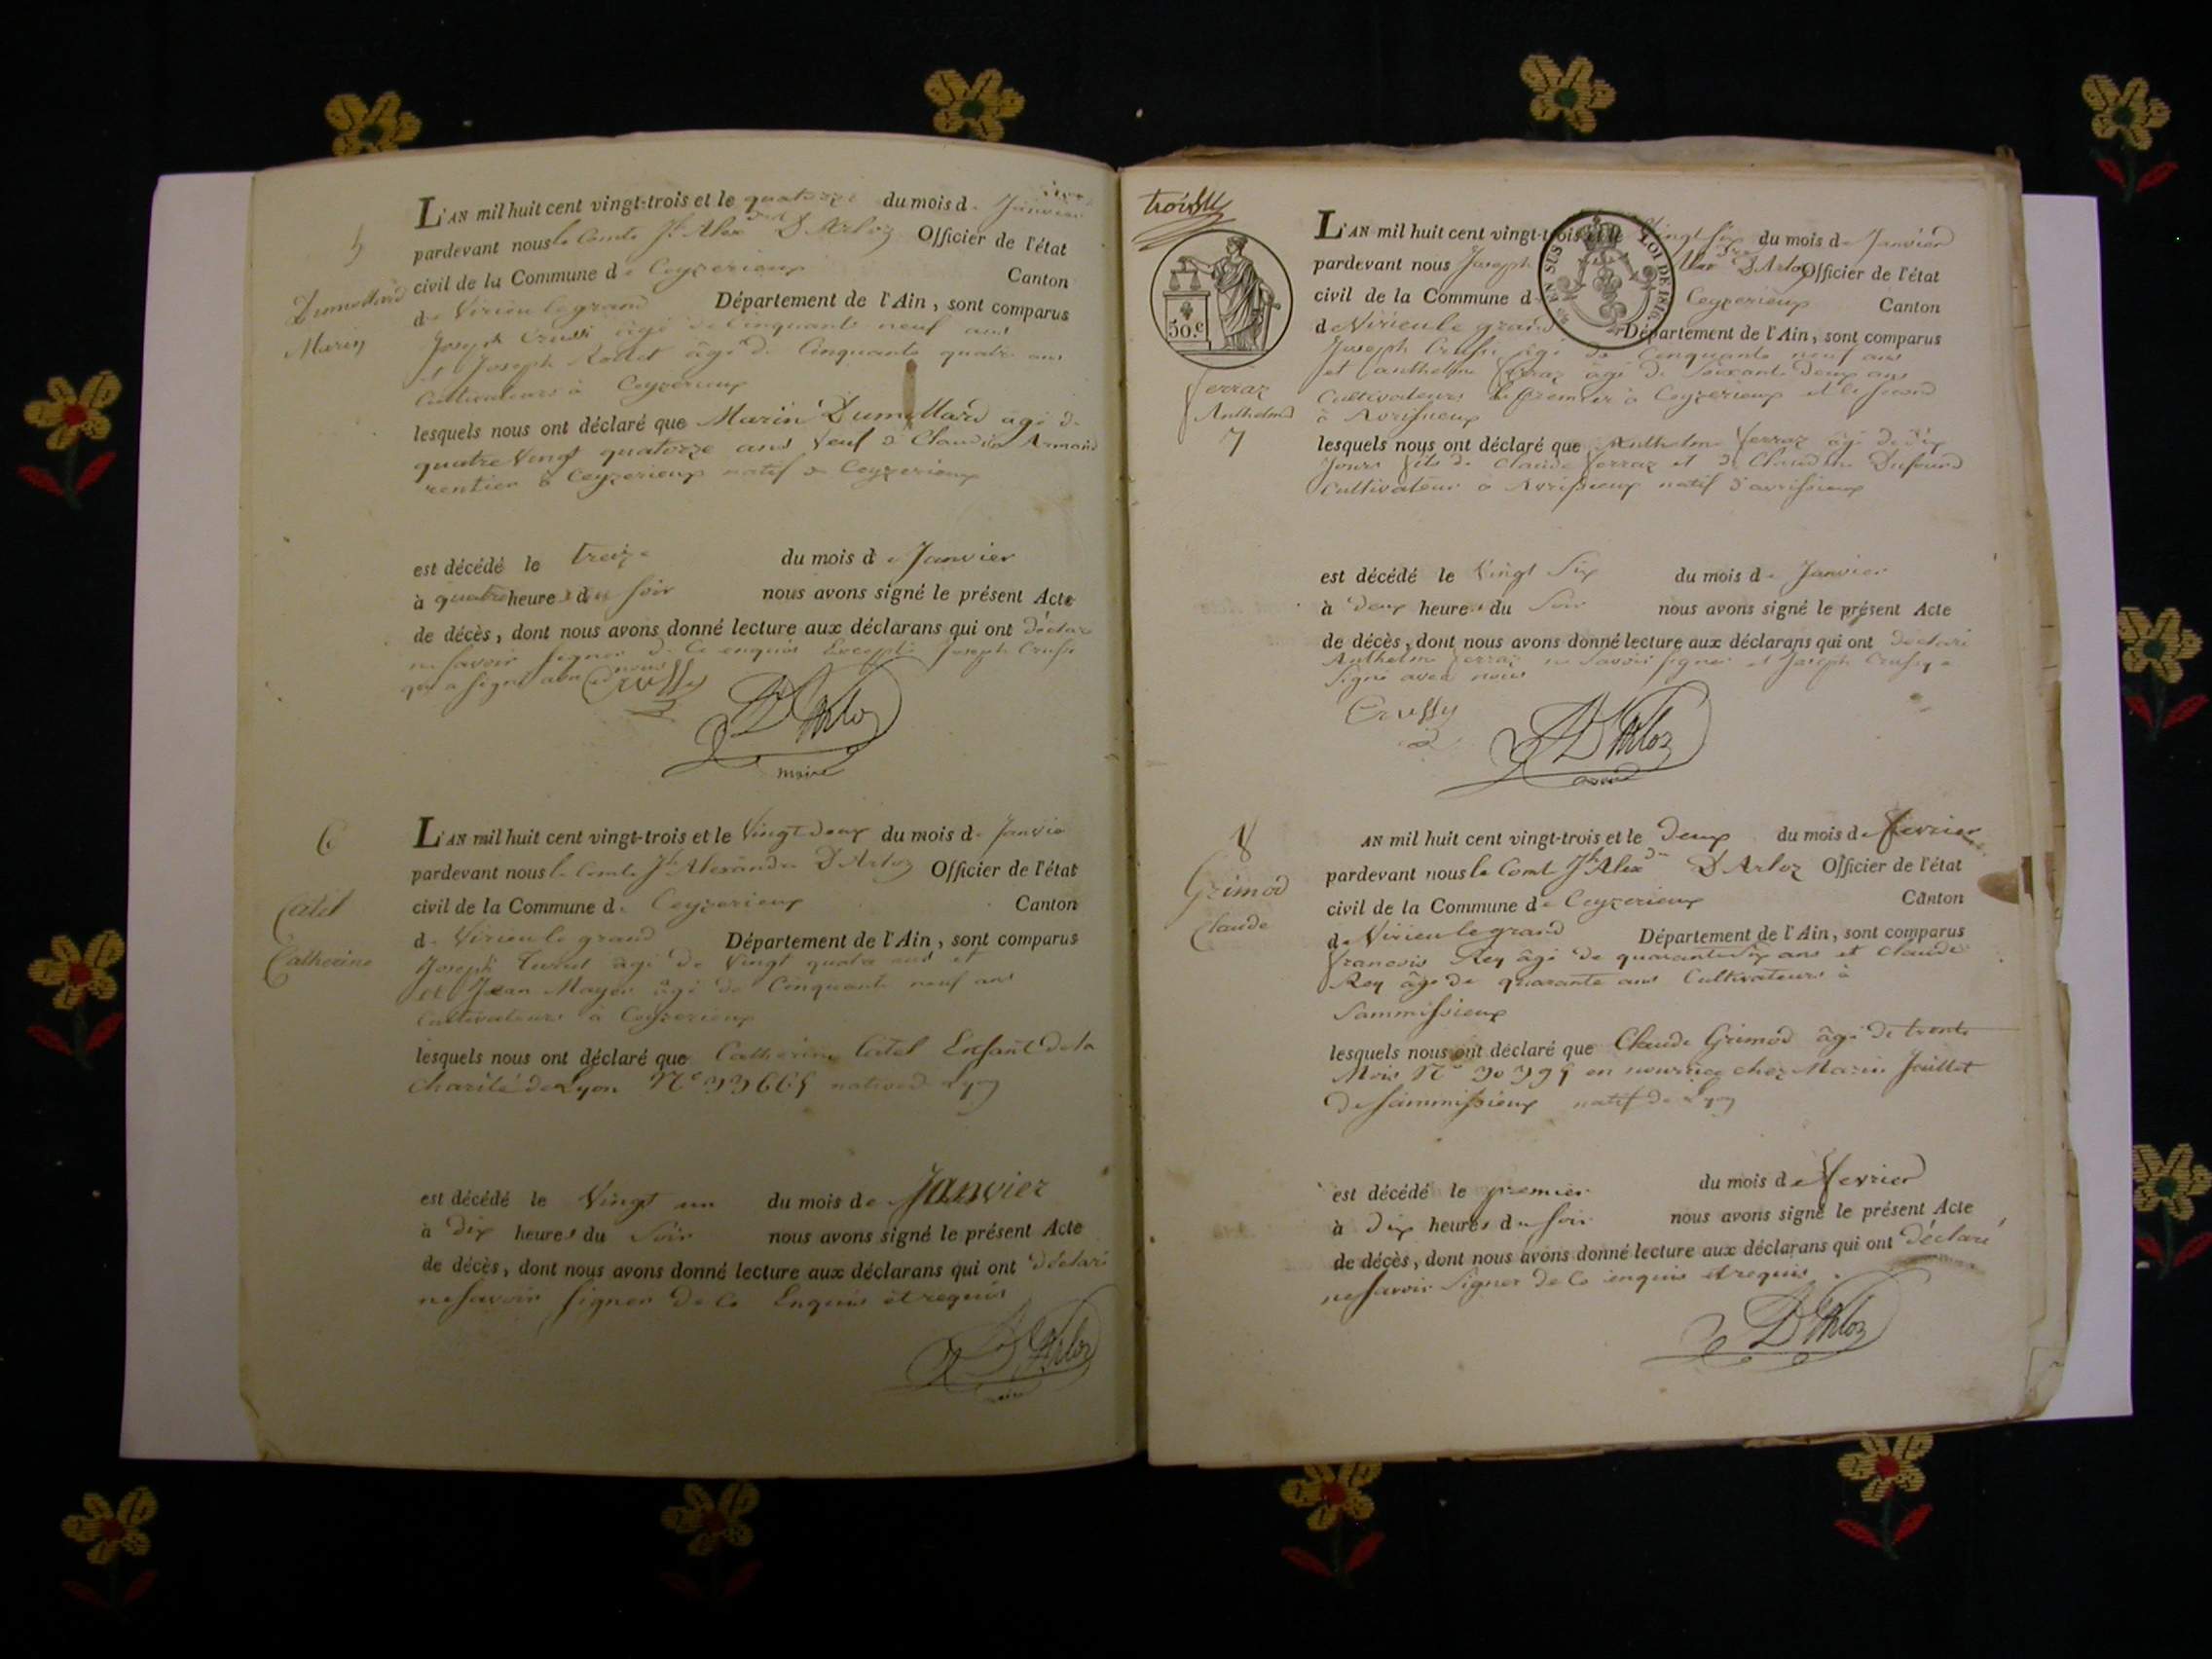 5
Dumollard
Marin
L'AN mil huit cent vingt-trois et le quatorze du mois de Janvier
pardevant nous le Comte Jh Alexdre D'Arloz Officier de l'état
civil de la Commune de Ceyzerieux Canton
de Virieu le grand Département de l'Ain, sont comparus
Joseph Crussi âgé de Cinquante neuf ans
et Joseph âgé de Cinquante quatre ans
Cultivateurs à Ceyzerieux
lesquels nous ont déclaré que Marin Dumollard âgé de
quatre Vingt quatorze ans Veuf de Claudine Armand
rentier à Ceyzerieux natif de Ceyzerieux
est décédé le treize du mois de Janvier
à quatre heures du soir nous avons signé le présent Acte
de décès, dont nous avons donné lecture aux déclarans qui ont déclaré
ne savoir signer de ce enquis Excepté Joseph Crussi
qui a signé avec nous
Crussy
D'Arloz
maire
6
Catel
Catherine
L'AN mil huit cent vingt-trois et le Vingt deux du mois de Janvier
pardevant nous le Comte Jh Alexandre D'Arloz Officier de l'état
civil de la Commune de Ceyzerieux Canton
de Virieu le grand Département de l'Ain, sont comparus
Joseph âgé de Vingt quatre ans et
et Jean Mayer âgé de Cinquante neuf ans
Cultivateurs à Ceyzerieux
lesquels nous ont déclaré que Catherine Catel Enfant de la
Charité de Lyon native de Lyon
est décédé le Vingt un du mois de Janvier
à Dix heures du Soir nous avons signé le présent Acte
de décès, dont nous avons donné lecture aux déclarans qui ont déclaré
ne savoir signer de ce Enquis et requis
D'Arloz
maire
trois
50.c
EN SUS
LOI DE 1816
Ferraz
Anthelme
7
L'AN mil huit cent vingt-trois et le Vingt Six du mois de Janvier
pardevant nous Joseph Alexdre D'Arloz Officier de l'état
civil de la Commune de Ceyzerieux Canton
de Virieu le grand Département de l'Ain, sont comparus
Joseph Crussi âgé de Cinquante neuf ans
et Anthelme Ferraz âgé de Soixante Deux ans
Cultivateurs le premier à Ceyzerieux et le second
à Avrissieux
lesquels nous ont déclaré que Anthelme Ferraz âgé de dix
Jours fils de Claude Ferraz et de Claudine Dufour
Cultivateur à Avrissieux natif d'avrissieux
est décédé le Vingt Six du mois de Janvier
à Deux heures du Soir nous avons signé le présent Acte
de décès, dont nous avons donné lecture aux déclarans qui ont déclaré
Anthelme Ferraz ne Savoir signer et Joseph Crussy a
signé avec nous
Crussy
D'Arloz
maire
8
Grimod
Claude
AN mil huit cent vingt-trois et le Deux du mois de fevrier
pardevant nous le Comte Jh Alexdre D'Arloz Officier de l'état
civil de la Commune de Ceyzerieux Canton
de Virieu le grand Département de l'Ain, sont comparus
francois Rey âgé de quarante Six ans et Claude
Rey âgé de quarante ans Cultivateurs à
Sammissieux
lesquels nous ont déclaré que Claude Grimod âgé de trente
Mois en nourrice chez Marin Juillet
de Sammissieux natif de Lyon
est décédé le premier du mois de fevrier
à dix heures du soir nous avons signé le présent Acte
de décès, dont nous avons donné lecture aux déclarans qui ont déclaré
ne Savoir Signer de Ce enquis et requis
D'Arloz